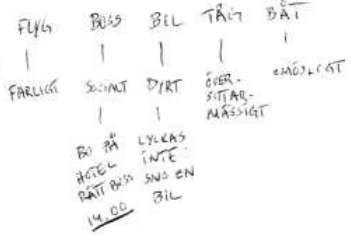 FLYG BUSS BIL TÅG BÅT
FARLIGT SOCIALT DYRT ÖVER-
SITTAR-
MÄSSIGT
BO PÅ
HOTEL
RÄTT BUSS
14.00
LYCKAS
INTE
SNO EN
BIL